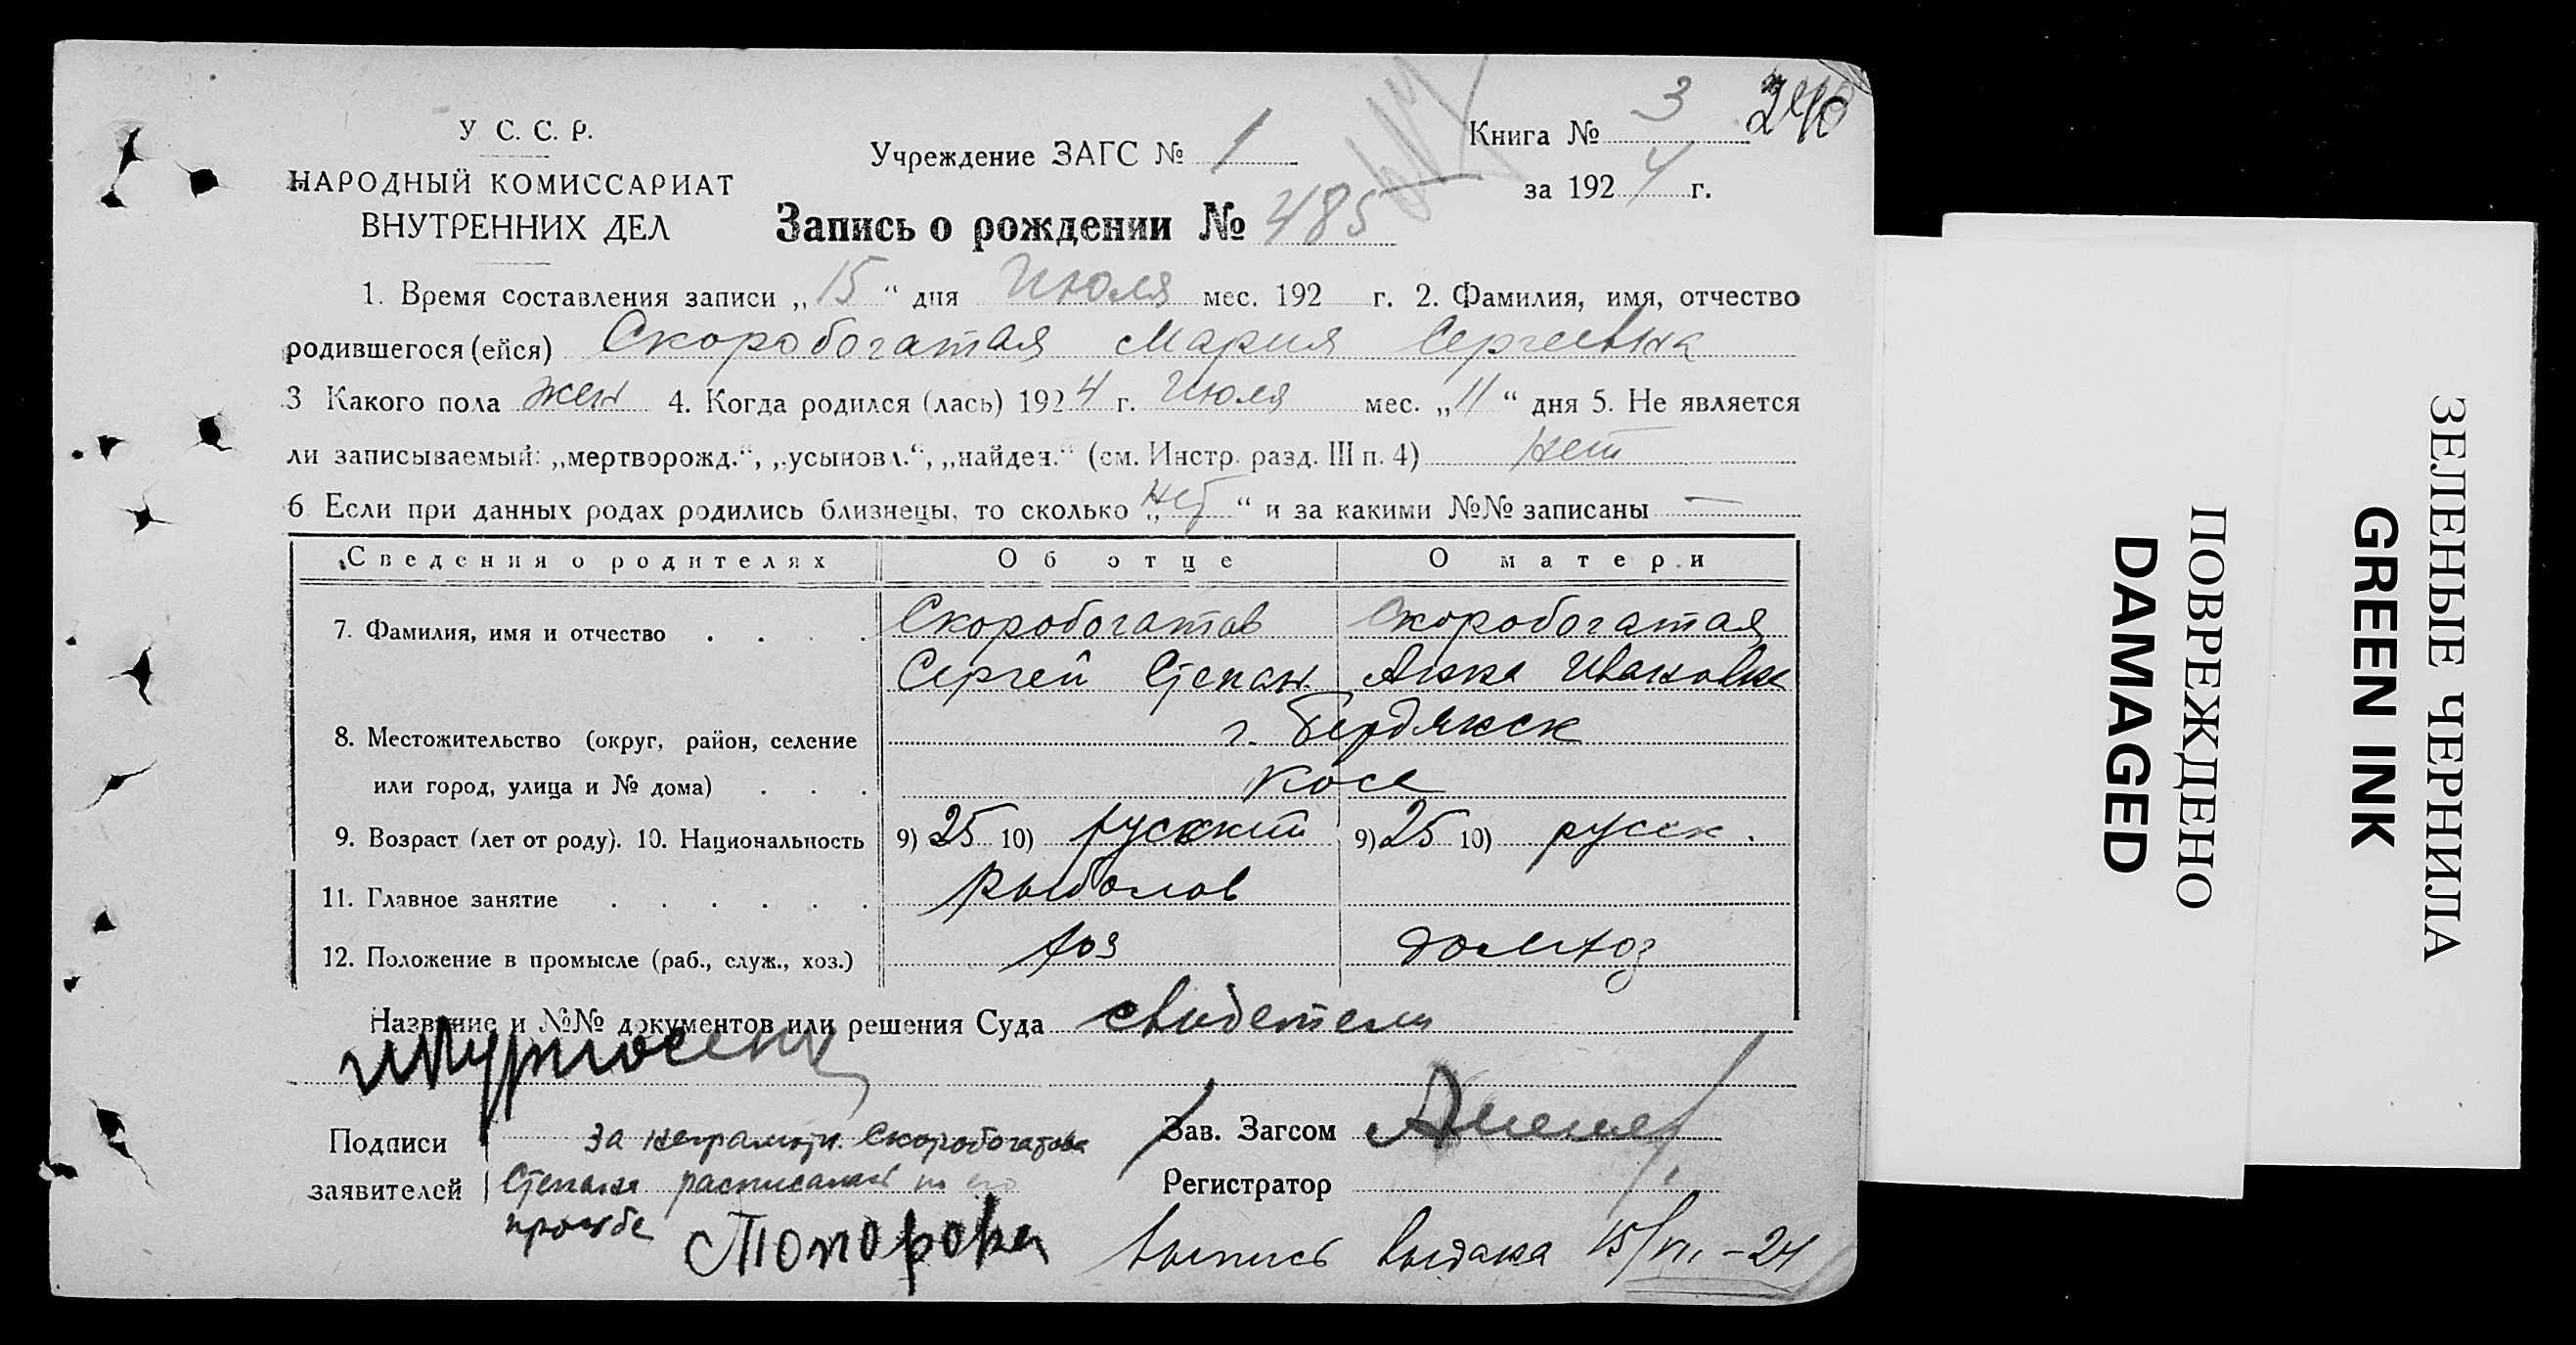 240
У С. С. Р.
НАРОДНЫЙ КОМИССАРИАТ
ВНУТРЕННИХ ДЕЛ
Учреждение ЗАГС № 1
Книга № 3
за 1924 г.
Запись о рождении № 485
1. Время составления записи „15“ дня Июля мес. 192 г. 2. Фамилия, имя, отчество
родившегося (ейся) Скоробогатая Мария Сергеевна
3 Какого пола жен 4. Когда родился (лась) 1924 г. Июля мес. „11“ дня 5. Не является
ли записываемый: „мертворожд.“, „усыновл.“, „найден.“ (см. Инстр. разд. III п. 4) нет
6 Если при данных родах родились близнецы, то сколько „нет“ и за какими №№ записаны —
Сведения о родителях Об отце О матери
7. Фамилия, имя и отчество . . . . Скоробогатов Скоробогатая
Сергей Степан. Анна Ивановна
8. Местожительство (округ, район, селение г. Бердянск
или город, улица и № дома) . . . коса
9. Возраст (лет от роду). 10. Национальность 9) 25 10) русский 9) 25 10) русск.
11. Главное занятие . . . . . . рыболов
12. Положение в промысле (раб., служ., хоз.) хоз домхоз
Название и №№ документов или решения Суда свидетели
Подписи
заявителей
за неграмотн. Скоробогатова
Степана расписался по его
просьбе
Зав. Загсом
Регистратор
выпись выдана 15/VII – 24
ЗЕЛЕНЫЕ ЧЕРНИЛА
GREEN INK
ПОВРЕЖДЕНО
DAMAGED